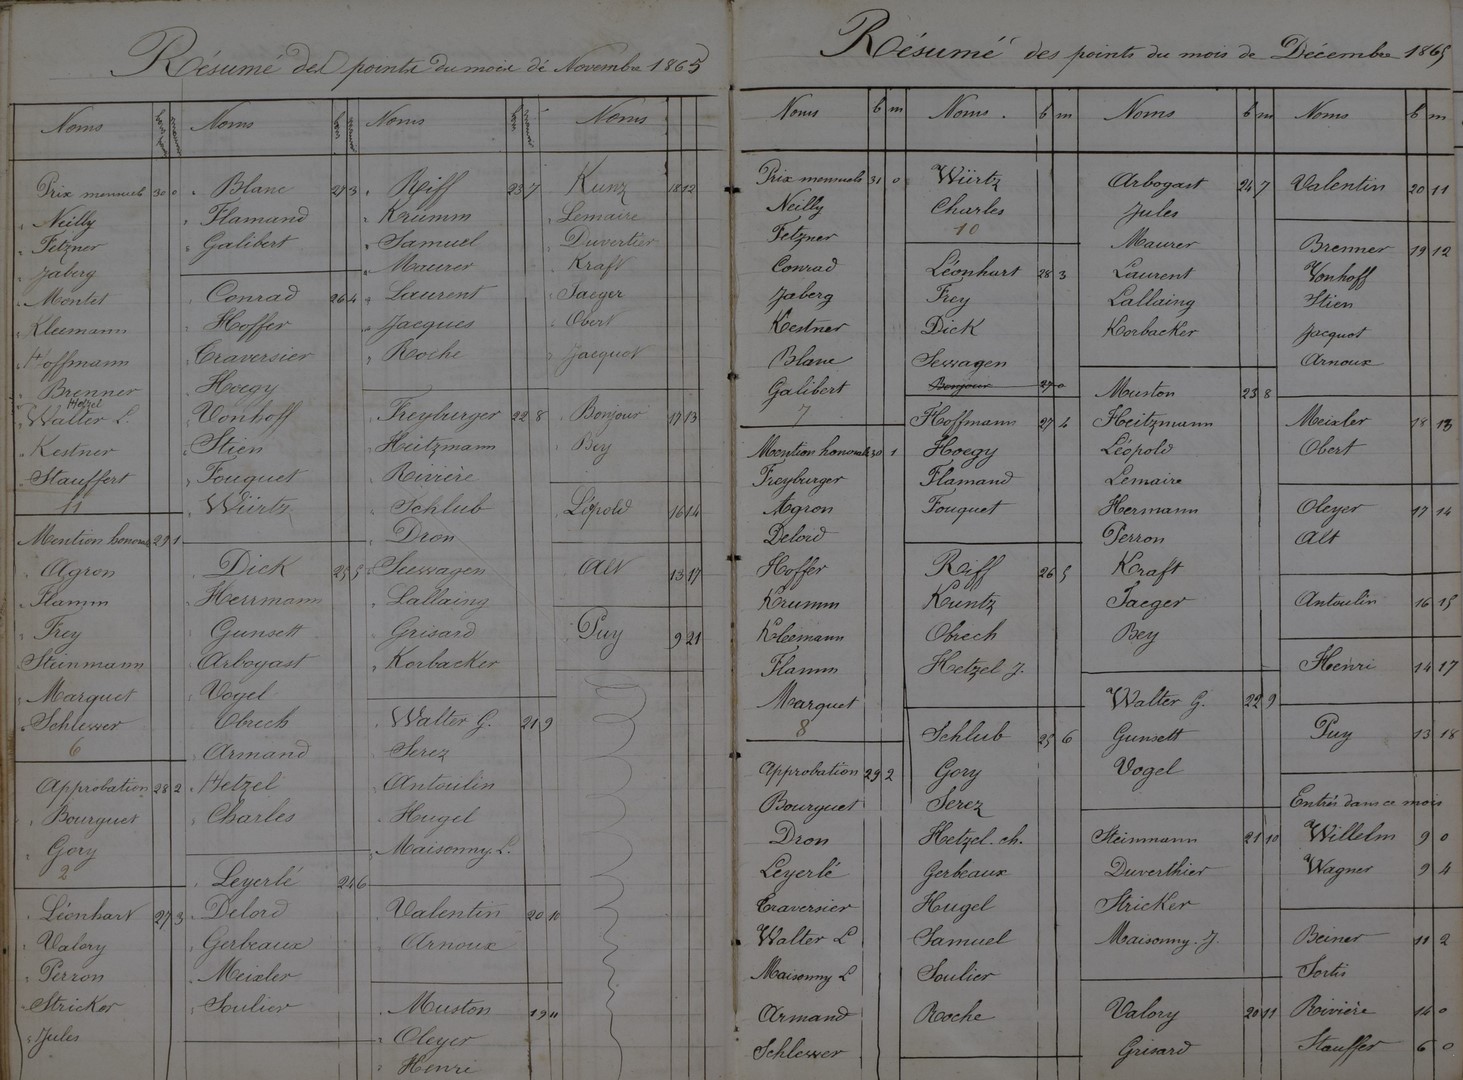 Résumé des points du mois de Novembre 1865
Noms bon mauv
Prix mensuels 30 0
Neilly
Fetzner
Jaberg
Montet
Kleemann
Hoffmann
Brenner
Hetzel
Walter L.
Kestner
Stauffert
11
Mention honorab 29 1
Agron
Flamm
Frey
Steinmann
Marquet
Schlesser
6
Approbation 28 2
Bourguet
Gory
2
Léonhart 27 3
Valory
Perron
Stricker
Jules
Noms bon mauv
Blanc 27 3
Flamand
Galibert
Conrad 26 4
Hoffer
Traversier
Hoegy
Vonhoff
Stien
Fouquet
Würtz
Dick 25 5
Herrmann
Gunsett
Arbogast
Vogel
Obrech
Armand
Hetzel
Charles
Leyerlé 24 6
Delord
Gerbeaux
Meixler
Soulier
Noms bon mauv
Riff 23 7
Krumm
Samuel
Maurer
Laurent
Jacques
Roche
Freyburger 22 8
Heitzmann
Rivière
Schlub
Dron
Sussagen
Lallaing
Grisard
Korbacker
Walter G. 21 9
Serez
Antoulin
Hugel
Maisonny L.
Valentin 20 10
Arnoux
Muston 19 11
Oleyer
Henri
Noms
Kunz 18 12
Lemaire
Duvertier
Kraft
Jaeger
Obert
Jacquot
Bonjour 17 13
Bey
Léopold 16 14
Alt 13 17
Puy 9 21
Résumé des points du mois de Décembre 1865
Noms b m
Prix mensuels 31 0
Neilly
Fetzner
Conrad
Jaberg
Kestner
Blanc
Galibert
7
Mention honorab 30 1
Freyburger
Agron
Delord
Hoffer
Krumm
Kleemann
Flamm
Marquet
8
Approbation 29 2
Bourguet
Dron
Leyerlé
Traversier
Walter L
Maisonny L
Armand
Schlesser
Noms. b m
Würtz
Charles
10
Léonhart 28 3
Frey
Dick
Sessagen
Bonjour 27 0
Hoffmann 27 4
Hoegy
Flamand
Fouquet
Riff 26 5
Kuntz
Obrech
Hetzel J.
Schlub 25 6
Gory
Serez
Hetzel. ch.
Gerbeaux
Hugel
Samuel
Soulier
Roche
Noms b m
Arbogast 24 7
Jules
Maurer
Laurent
Lallaing
Korbacker
Muston 23 8
Heitzmann
Léopold
Lemaire
Hermann
Perron
Kraft
Jaeger
Bey
Walter G. 22 9
Gunsett
Vogel
Steinmann 21 10
Duverthier
Stricker
Maisonny. J
Valory 20 11
Grisard
Noms b m
Valentin 20 11
Brenner 19 12
Vonhoff
Stien
Jacquot
Arnoux
Meixler 18 13
Obert
Oleyer 17 14
Alt
Antoulin 16 15
Henri 14 17
Puy 13 18
Entrés dans ce mois
Willelm 9 0
Wagner 9 4
Beiner 11 2
Sortis
Rivière 14 0
Stauffer 6 0